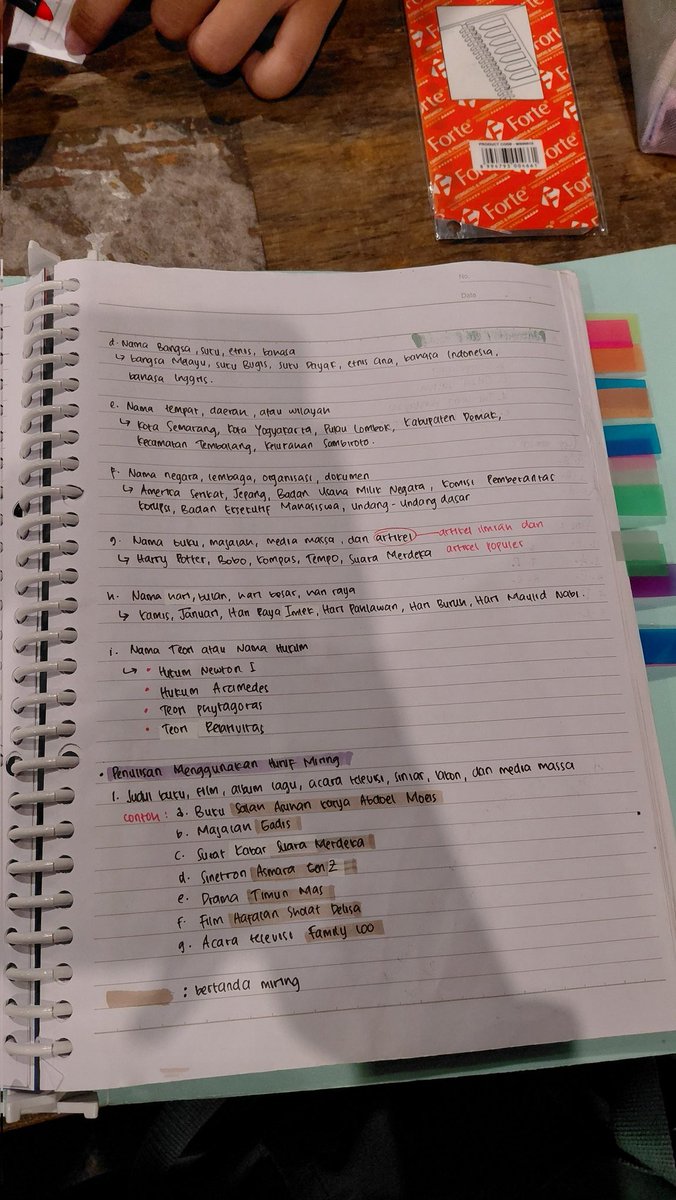 Forte
PRODUCT CODE : 
8 994793 004661
No.
Date
d. Nama Bangsa, suku, etnis, bahasa
↳ bangsa Melayu, suku Bugis, suku Dayak, etnis Cina, bahasa Indonesia,
bahasa Inggris.
e. Nama tempat, daerah, atau wilayah
↳ Kota Semarang, Kota Yogyakarta, Pulau Lombok, Kabupaten Demak,
Kecamatan Tembalang, Kelurahan Sambiroto.
f. Nama negara, lembaga, organisasi, dokumen
↳ Amerika Serikat, Jepang, Badan Usaha Milik Negara, Komisi Pemberantas
korupsi, Badan Eksekutif Mahasiswa, Undang-Undang dasar
g. Nama buku, majalah, media massa, dan artikel — artikel ilmiah dan
↳ Harry Potter, Bobo, Kompas, Tempo, Suara Merdeka artikel populer
h. Nama hari, bulan, hari besar, hari raya
↳ Kamis, Januari, Hari Raya Imlek, Hari Pahlawan, Hari Buruh, Hari Maulid Nabi.
i. Nama Teori atau Nama Hukum
↳ • Hukum Newton I
• Hukum Arcimedes
• Teori phytagoras
• Teori Relativitas
• Penulisan Menggunakan Huruf Miring
1. Judul buku, film, album lagu, acara televisi, siniar, lakon, dan media massa
contoh : a. Buku Salah Asuhan karya Abdoel Moeis
b. Majalah Gadis
c. Surat Kabar Suara Merdeka
d. Sinetron Asmara Gen Z
e. Drama Timun Mas
f. Film Hafalan Sholat Delisa
g. Acara televisi Family 100
: bertanda miring